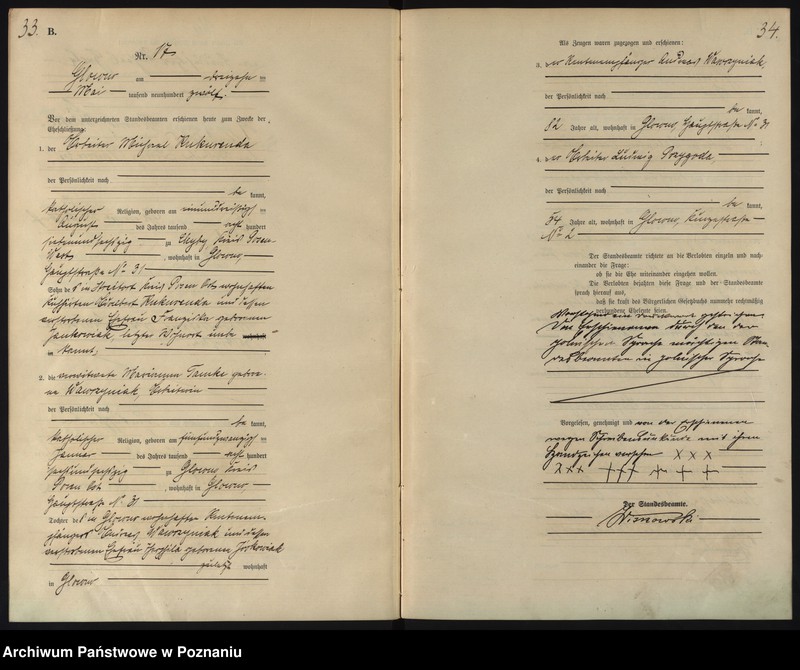 33.
B.
Nr. 17
Glowno am dreizehn ten
Mai tausend neunhundert zwölf.
Vor dem unterzeichneten Standesbeamten erschienen heute zum Zwecke der
Eheschließung:
1. der Arbeiter Michael Kukurenda
der Persönlichkeit nach
be kannt,
katholischer Religion, geboren am einunddreißigsten
August des Jahres tausend acht hundert
siebzig zu Kreis Posen
West, wohnhaft in Glowno,
Hauptstraße No 31
Sohn des in Kreis Posen Ost wohnhaften
Kukurenda und dessen
verstorbenen Ehefrau Franziska geborenen
Jankowiak, letzter Wohnort unbe wohnhaft
in kannt.
2. die verwitwete Marianna Tomke gebore-
ne Wawrzyniak, Arbeiterin
der Persönlichkeit nach
be kannt,
katholischer Religion, geboren am fünfundzwanzigsten
Januar des Jahres tausend acht hundert
sechsundsechzig zu Glowno Kreis
Posen Ost, wohnhaft in Glowno
Hauptstraße No 31
Tochter des in Glowno wohnhaften Rentenem-
pfängers Andreas Wawrzyniak und dessen
verstorbenen Ehefrau geborenen
zuletzt wohnhaft
in Glowno
34.
Als Zeugen waren zugezogen und erschienen:
3. der Rentenempfänger Andreas Wawrzyniak,
der Persönlichkeit nach
be kannt,
82 Jahre alt, wohnhaft in Glowno, Hauptstraße No 31
4. der Arbeiter Ludwig Przygoda
der Persönlichkeit nach
be kannt,
54 Jahre alt, wohnhaft in Glowno,
No 2
Der Standesbeamte richtete an die Verlobten einzeln und nach-
einander die Frage:
ob sie die Ehe miteinander eingehen wollen.
Die Verlobten bejahten diese Frage und der Standesbeamte
sprach hierauf aus,
daß sie kraft des Bürgerlichen Gesetzbuchs nunmehr rechtmäßig
verbundene Eheleute seien.
Den Erschienenen durch den der
polnischen Sprache mächtigen Stan-
desbeamten in polnischer Sprache
Vorgelesen, genehmigt und von den Erschienenen
wegen Schreibensunkunde mit ihren
Handzeichen versehen X X X
X X X + + + + + +
Der Standesbeamte.
Archiwum Państwowe w Poznaniu